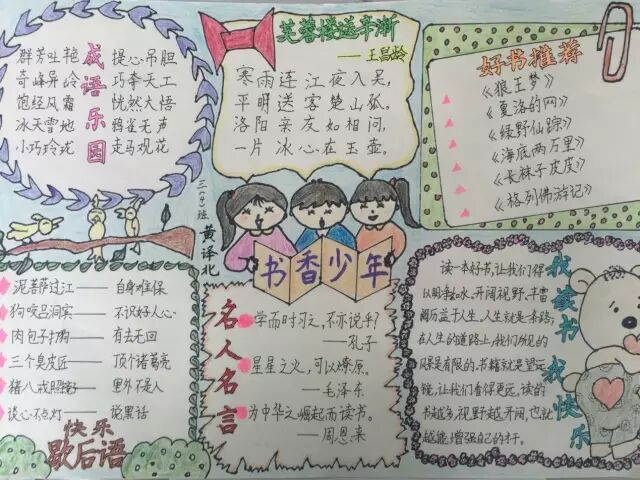 成语乐园
群芳吐艳 提心吊胆
奇峰异岭 巧夺天工
饱经风霜 恍然大悟
冰天雪地 鸦雀无声
小巧玲珑 走马观花
芙蓉楼送辛渐
——王昌龄
寒雨连江夜入吴,
平明送客楚山孤。
洛阳亲友如相问,
一片冰心在玉壶。
好书推荐
《狼王梦》
《夏洛的网》
《绿野仙踪》
《海底两万里》
《长袜子皮皮》
《格列佛游记》
三(4)班 黄译北
书香少年
泥菩萨过江——自身难保
狗咬吕洞宾——不识好人心
肉包子打狗——有去无回
三个臭皮匠——顶个诸葛亮
猪八戒照镜子——里外不是人
谈心不点灯——说黑话
快乐
歇后语
名人名言
学而时习之,不亦说乎?
——孔子
星星之火,可以燎原。
——毛泽东
为中华之崛起而读书。
——周恩来
我读书 我快乐
读一本好书,让我们得
以明净如水、开阔视野、丰富
阅历益于人生。人生就是一条路,
在人生的道路上,我们所见的
风景是有限的。书籍就是望远
镜,让我们看得更远,读的
书越多,视野越开阔,也就
越能增强自己的才干。